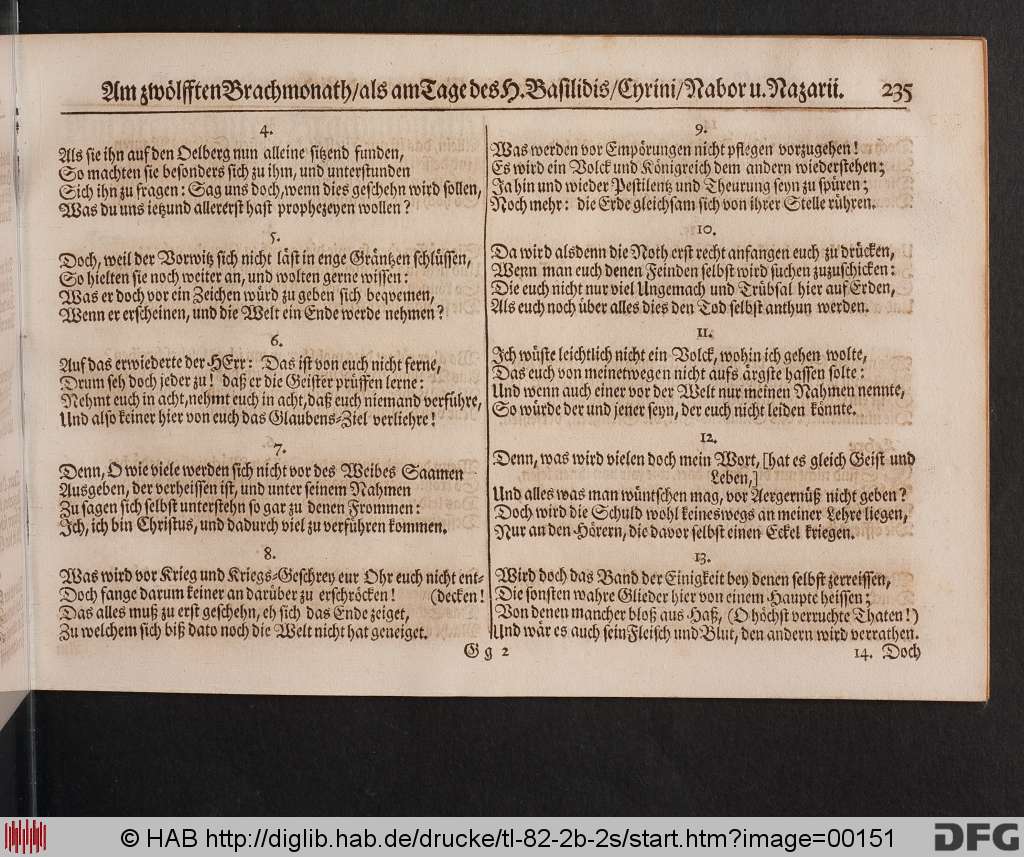 Am zwölfften Brachmonath/als am Tage des H. Basilidis/Cyrini/Nabor u. Nazarii. 235
4.
Als sie ihn auf den Oelberg nun alleine sitzend funden,
So machten sie besonders sich zu ihm, und unterstunden
Sich ihn zu fragen: Sag uns doch, wenn dies geschehn wird sollen,
Was du uns ietzund allererst hast prophezeyen wollen?
5.
Doch, weil der Vorwitz sich nicht läst in enge Gräntzen schlüssen,
So hielten sie noch weiter an, und wolten gerne wissen:
Was er doch vor ein Zeichen würd zu geben sich beqvemen,
Wenn er erscheinen, und die Welt ein Ende werde nehmen?
6.
Auf das erwiederte der HErr: Das ist von euch nicht ferne,
Drum seh doch jeder zu! daß er die Geister prüffen lerne:
Nehmt euch in acht, nehmt euch in acht, daß euch niemand verführe,
Und also keiner hier von euch das Glaubens-Ziel verliehre!
7.
Denn, O wie viele werden sich nicht vor des Weibes Saamen
Ausgeben, der verheissen ist, und unter seinem Nahmen
Zu sagen sich selbst unterstehn so gar zu denen Frommen:
Ich, ich bin Christus, und dadurch viel zu verführen kommen.
8.
Was wird vor Krieg und Kriegs-Geschrey eur Ohr euch nicht ent-
Doch fange darum keiner an darüber zu erschröcken! (decken!
Das alles muß zu erst geschehn, eh sich das Ende zeiget,
Zu welchem sich biß dato noch die Welt nicht hat geneiget.
9.
Was werden vor Empörungen nicht pflegen vorzugehen!
Es wird ein Volck und Königreich dem andern wiederstehen;
Ja hin und wieder Pestilentz und Theurung seyn zu spüren;
Noch mehr: die Erde gleichsam sich von ihrer Stelle rühren.
10.
Da wird alsdenn die Noth erst recht anfangen euch zu drücken,
Wenn man euch denen Feinden selbst wird suchen zuzuschicken:
Die euch nicht nur viel Ungemach und Trübsal hier auf Erden,
Als euch noch über alles dies den Tod selbst anthun werden.
11.
Ich wüste leichtlich nicht ein Volck, wohin ich gehen wolte,
Das euch von meinetwegen nicht aufs ärgste hassen solte:
Und wenn auch einer vor der Welt nur meinen Nahmen nennte,
So würde der und jener seyn, der euch nicht leiden könnte.
12.
Denn, was wird vielen doch mein Wort, [hat es gleich Geist und
Leben,]
Und alles was man wüntschen mag, vor Aergernüß nicht geben?
Doch wird die Schuld wohl keineswegs an meiner Lehre liegen,
Nur an den Hörern, die davor selbst einen Eckel kriegen.
13.
Wird doch das Band der Einigkeit bey denen selbst zerreissen,
Die sonsten wahre Glieder hier von einem Haupte heissen;
Von denen mancher bloß aus Haß, (O höchst verruchte Thaten!)
Und wär es auch sein Fleisch und Blut, den andern wird verrathen.
G g 2
14. Doch
© HAB http://diglib.hab.de/drucke/tl-82-2b-2s/start.htm?image=00151
DFG